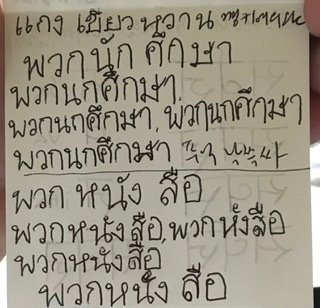 แกง เขียว หวาน
พวกนักศึกษา
พวกนกศึกษา,
พวกนกศึกษา, พวกนกศึกษา
พวกนกศึกษา
พวก หนัง สือ
พวกหนังสือ, พวกหังสือ
พวกหนังสือ
พวกหนัง สือ